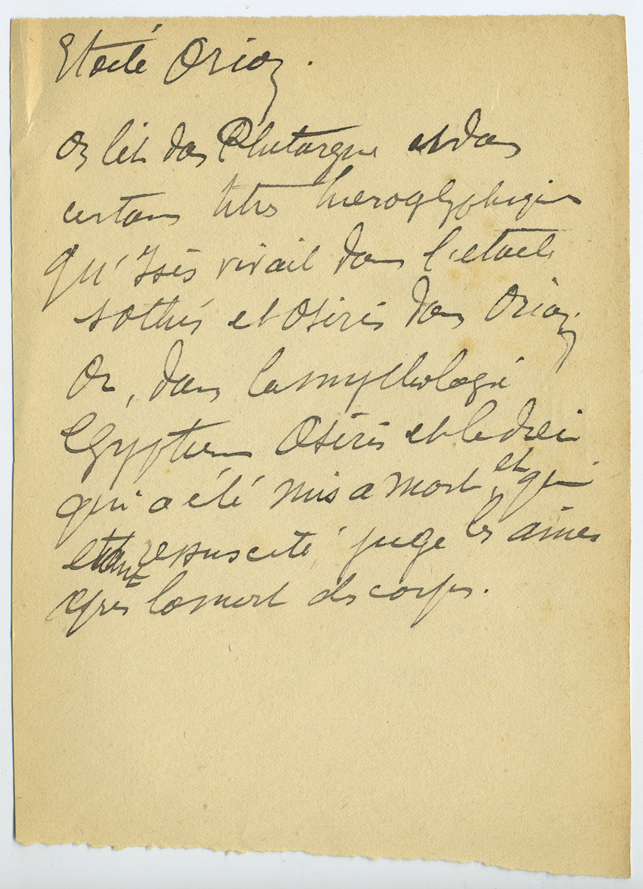 Etoile Orion.
On lit dans Plutarque et dans
certains titres hieroglyphiques
qu'Isis vivait dans l'etoile
sothis et Osiris dans Orion.
Or, dans la mythologie
Egyptienne Osiris est le dieu
qui a été mis a mort et qui
etant ressuscité juge les âmes
après la mort des corps.